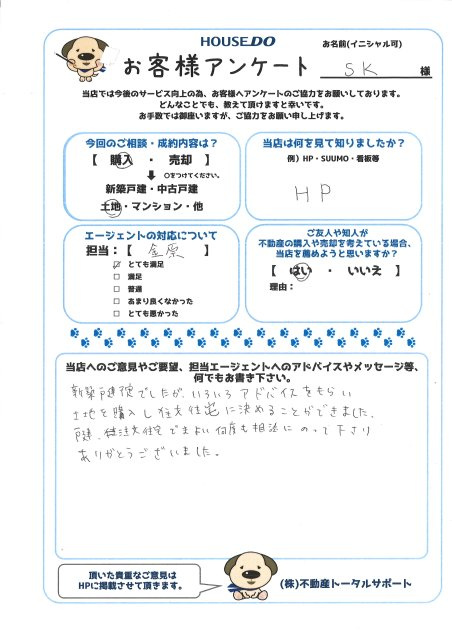 HOUSEDO
お客様アンケート
お名前(イニシャル可)
SK 様
当店では今後のサービス向上の為、お客様へアンケートのご協力をお願いしております。
どんなことでも、教えて頂けますと幸いです。
お手数では御座いますが、ご協力をお願い申し上げます。
今回のご相談・成約内容は?
【 購入 ・ 売却 】
○をつけてください。
新築戸建・中古戸建
土地・マンション・他
当店は何を見て知りましたか?
例) HP・SUUMO・看板等
HP
エージェントの対応について
担当:【 金原 】
☑ とても満足
□ 満足
□ 普通
□ あまり良くなかった
□ とても悪かった
ご友人や知人が
不動産の購入や売却を考えている場合、
当店を薦めようと思いますか?
【 はい ・ いいえ 】
理由:
当店へのご意見やご要望、担当エージェントへのアドバイスやメッセージ等、
何でもお書き下さい。
新築戸建希望でしたが、いろいろアドバイスをもらい
土地を購入し注文住宅に決めることができました。
戸建、注文住宅でまよい何度も相談にのって下さり
ありがとうございました。
頂いた貴重なご意見は
HPに掲載させて頂きます。
(株)不動産トータルサポート